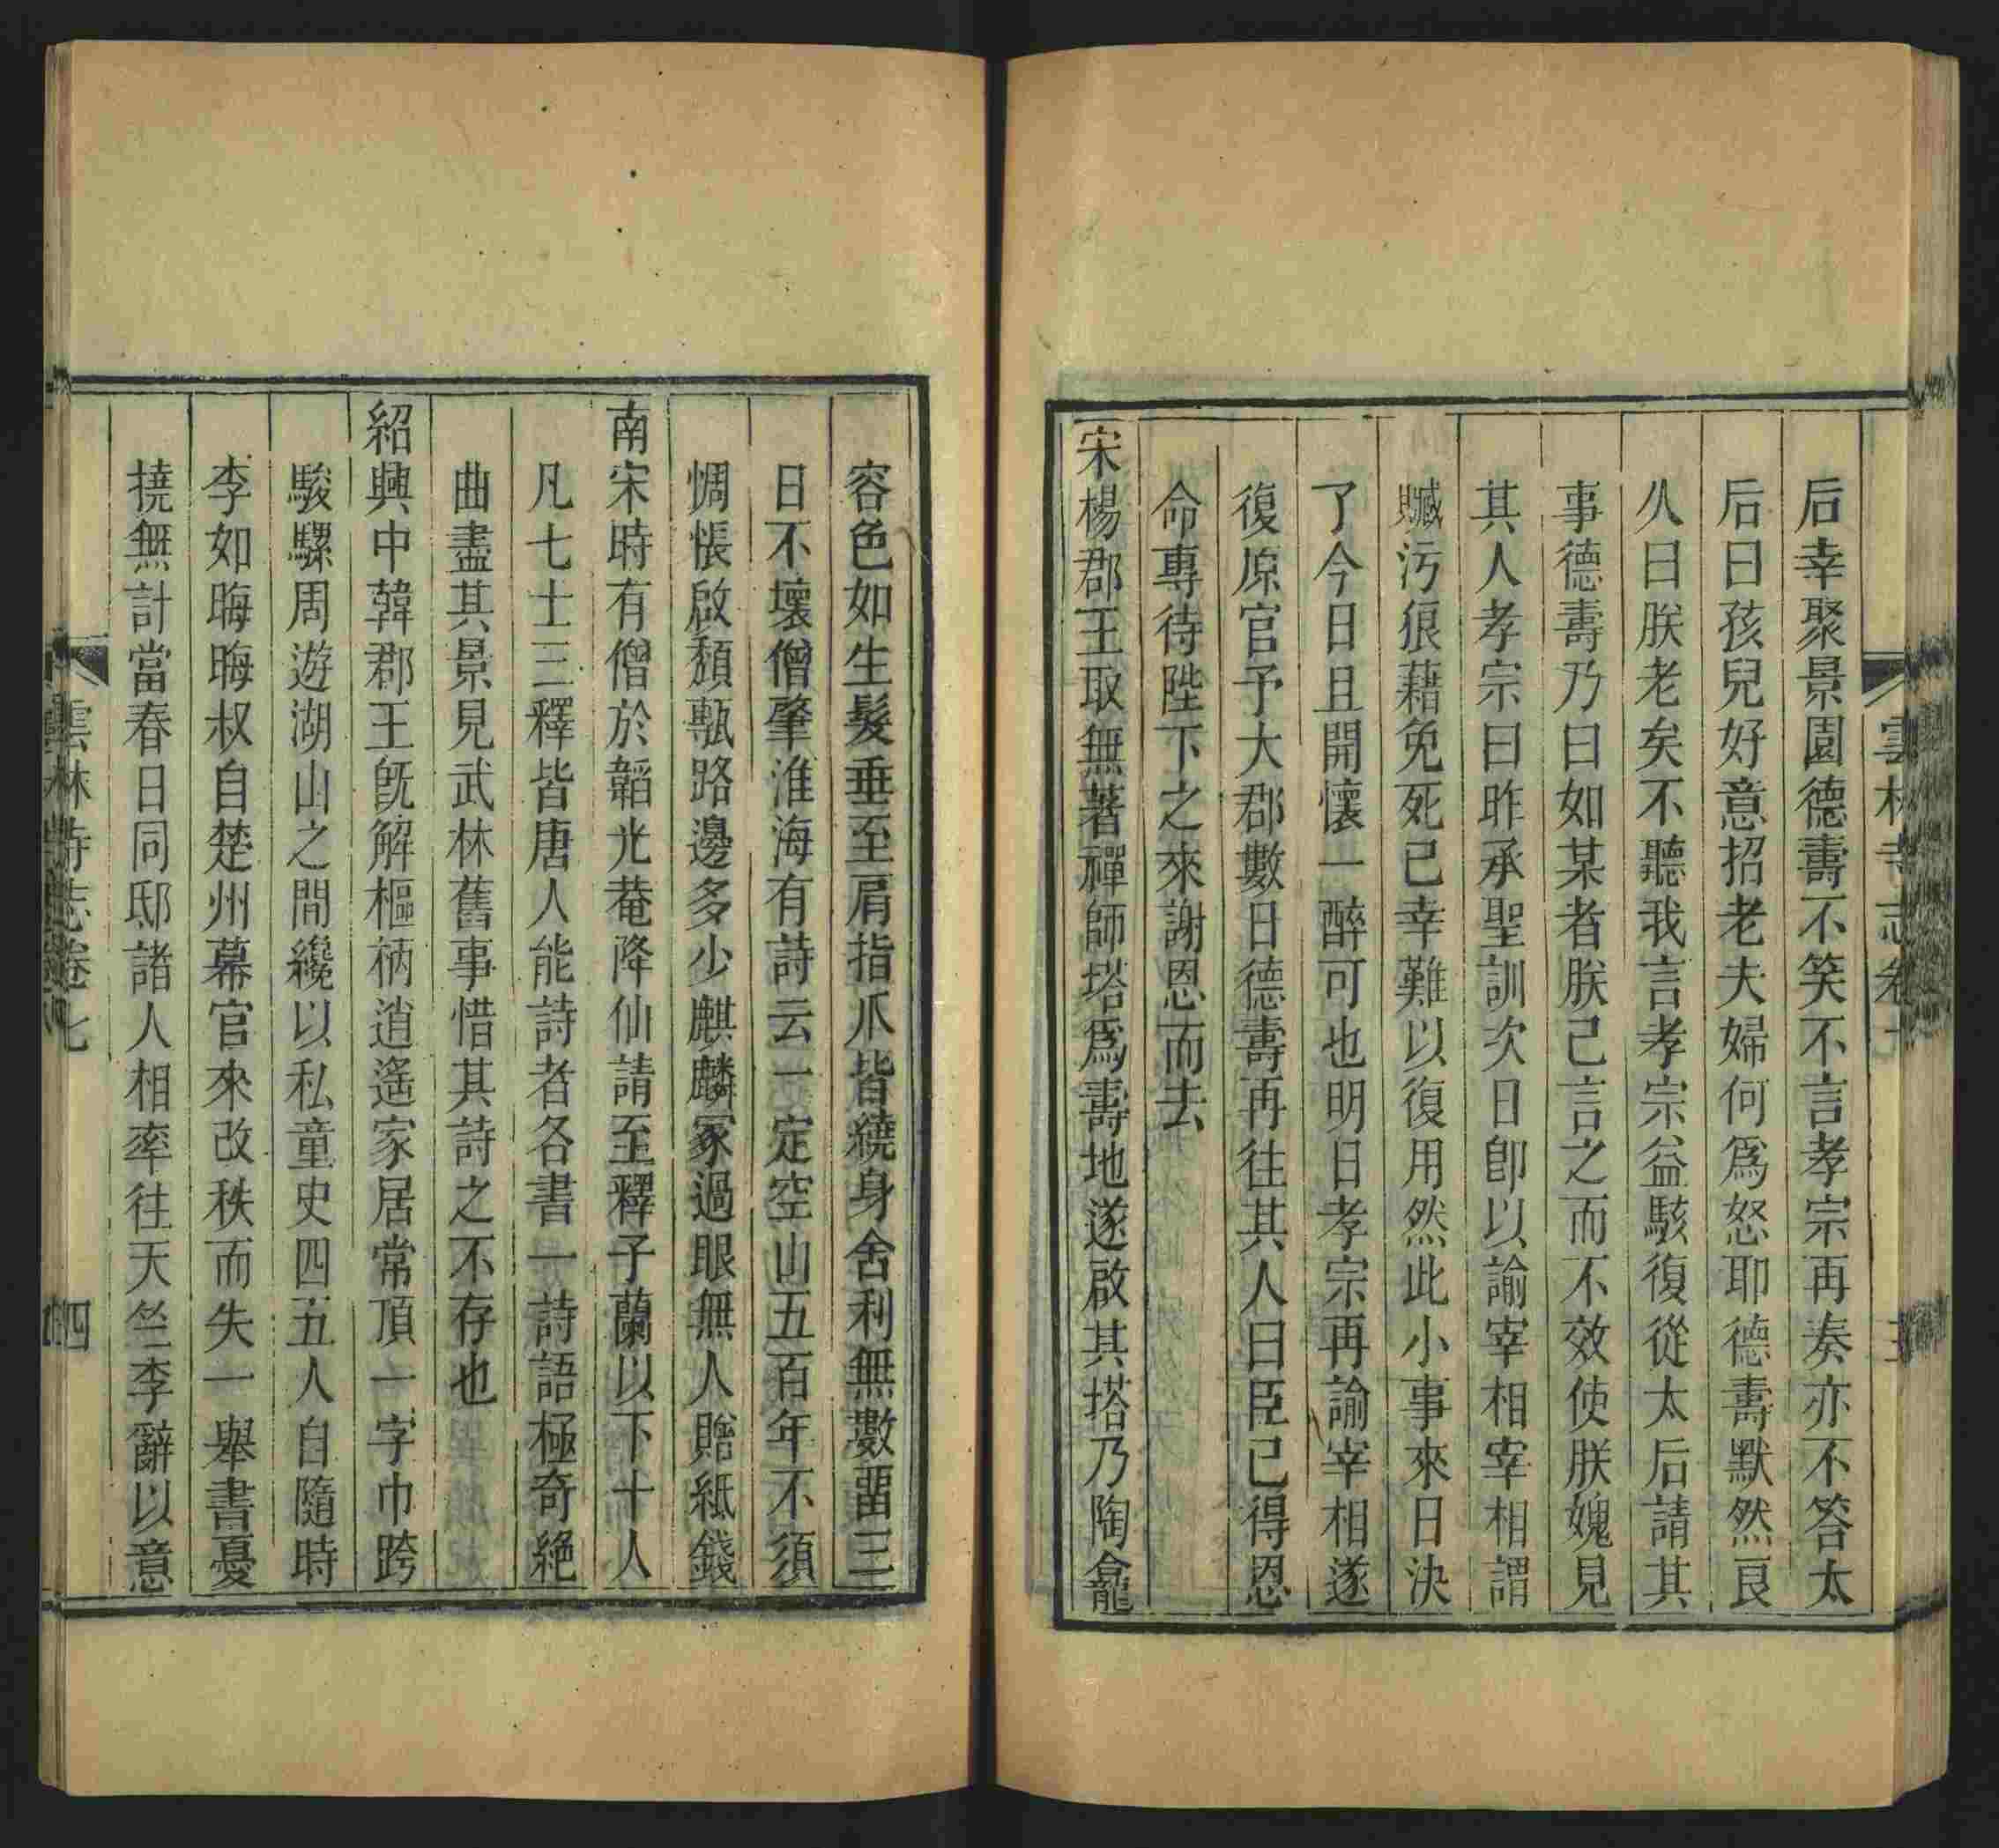 雲林寺志卷七
三
后幸聚景園德壽不笑不言孝宗再奏亦不答太
后曰孩兒好意招老夫婦何爲怒耶德壽默然良
久曰朕老矣不聽我言孝宗益駭復從太后請其
事德壽乃曰如某者朕己言之而不效使朕媿見
其人孝宗曰昨承聖訓次日卽以諭宰相宰相謂
贓污狼藉免死已幸難以復用然此小事來日決
了今日且開懷一醉可也明日孝宗再諭宰相遂
復原官予大郡數日德壽再往其人曰臣已得恩
命專待陛下之來謝恩而去
宋楊郡王取無著禪師塔爲壽地遂啟其塔乃陶龕
容色如生髮垂至肩指爪皆繞身舍利無數畱三
日不壞僧肇淮海有詩云一定空山五百年不須
惆悵啟頹甎路邊多少麒麟冢過眼無人賠紙錢
南宋時有僧於韜光菴降仙請至釋子蘭以下十人
凡七士三釋皆唐人能詩者各書一詩語極奇絕
曲盡其景見武林舊事惜其詩之不存也
紹興中韓郡王旣解樞柄逍遙家居常頂一字巾跨
駿騾周遊湖山之間纔以私童史四五人自隨時
李如晦晦叔自楚州幕官來改秩而失一舉書憂
撓無計當春日同邸諸人相率往天竺李辭以意
雲林寺志卷七
四